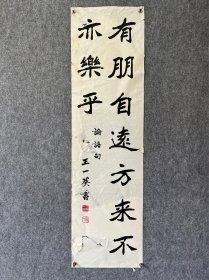 有朋自遠方来不
亦樂乎
論語句
王一英書